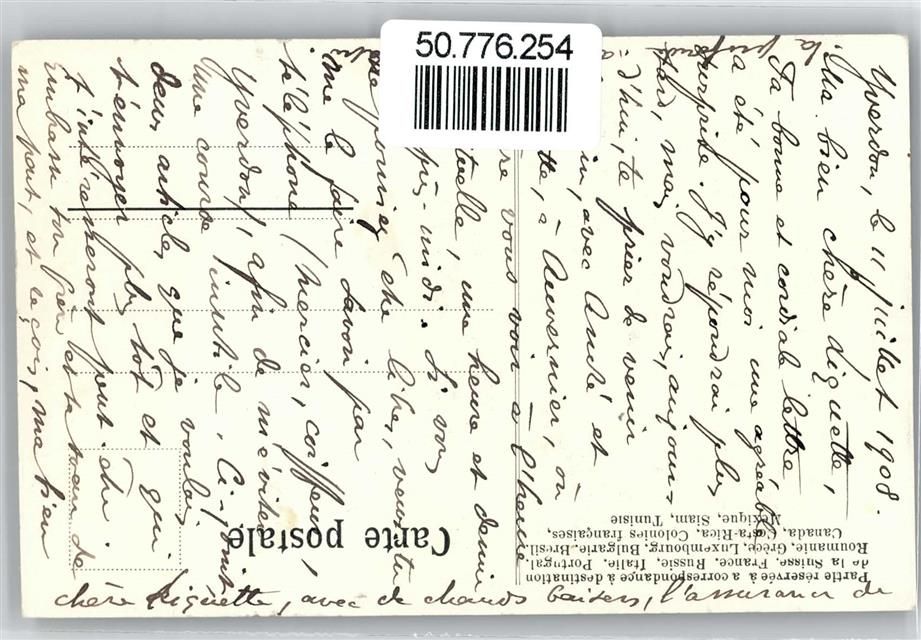 50.776.254
Yverdon, le 11 juillet 1908.
Ma bien chère Liquette,
Ta bonne et cordiale lettre,
a été pour moi une agréable
surprise. J'y répondrai plus
tard, mais voudrais, aujour-
d'hui, te prier de venir
avec André et
à Auvernier, où
vous voir à l'heure
une heure et demie
après-midi. Si vous
ne pouviez être libre, veux-tu
me le faire savoir par
téléphone (Mercier, coiffeur,
Yverdon), afin de m'éviter
une course inutile. Ci-joint
deux articles que je voulais
t'envoyer plus tôt et qui
t'intéresseront peut-être.
Embrasse ton frère et ta maman de
ma part, et reçois, ma bien
chère Liquette, avec de chauds baisers, l'assurance de
Carte postale
Partie réservée à correspondance à destination
de la Suisse, France, Russie, Italie, Portugal,
Roumanie, Grèce, Luxembourg, Bulgarie, Brésil,
Canada, Costa-Rica, Colonies françaises,
Mexique, Siam, Tunisie